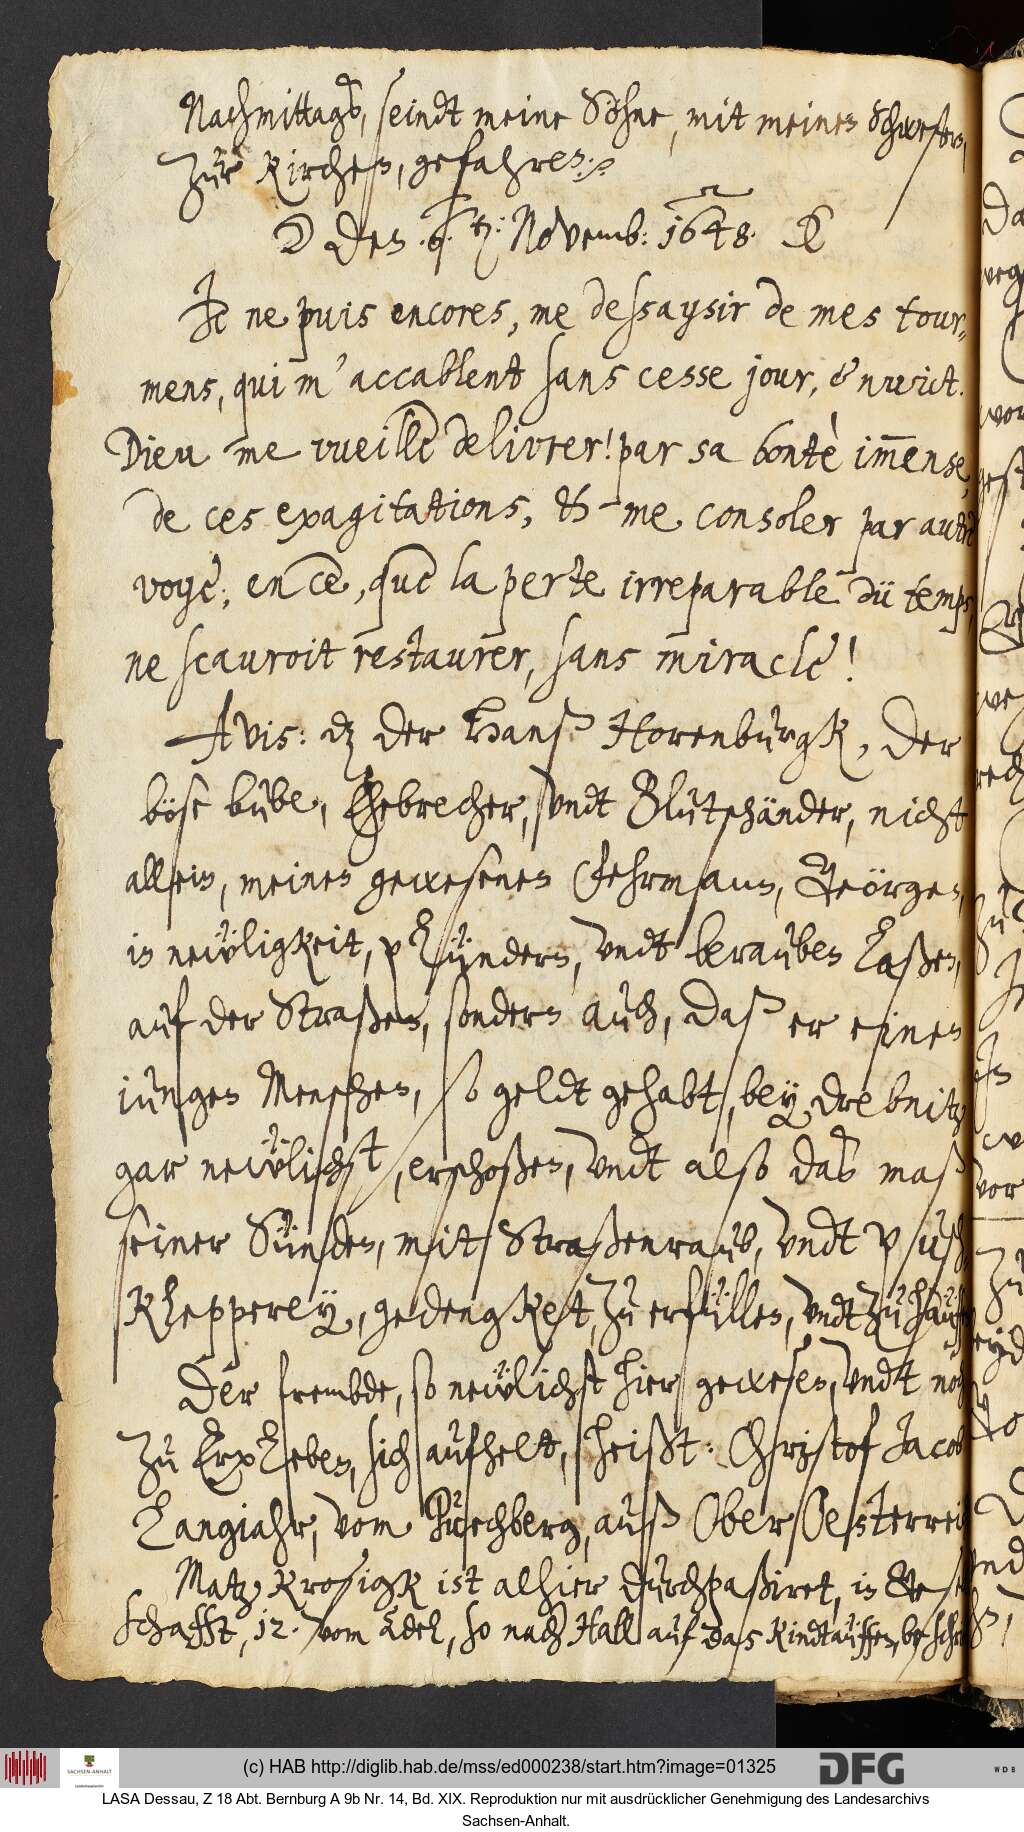 Nachmittags, seindt meine Söhne, mit meinen Schwestern,
zur Kirchen, gefahren.
☽ den .6. ten: Novemb: 1648.
Je ne puis encores, me dessaysir de mes tour-
mens, qui m'accablent sans cesse jour, & nuict.
Dieu me vueille delivrer! par sa bontè im̄ense,
de ces exagitations, & me consoler par autre
voye, en ce, que la perte irreparable dü temps,
ne scauroit restaurer, sans miracle!
Avis: dz der Hanß Horenburgk, der
böse bube, Ehebrecher, undt Blutschänder, nicht
allein, meinen gewesenen Fehrmann, Geörgen,
in neẅligkeit, plündern, undt berauben laßen,
auf der Straßen, sondern auch, daß er einen
iungen Menschen, so geldt gehabt, bey Drebnitz
gar neẅlichst, erschoßen, undt also das maß
seiner Sünden, mit Straßenraub, undt
klepperey, gedengket, zu erfüllen, undt zu
Der frembde, so neẅlichst hier gewesen, undt noch
zu Erxleben, sich aufhelt, heißt: Christof Jacob
Langiahr, vom Puechberg, auß OberOesterrei
Matz Krosigk ist alhier durchpaßiret, in
schafft, 12. vom Adel, so nach Hall auf das Kindtauffen,
(c) HAB http://diglib.hab.de/mss/ed000238/start.htm?image=01325
SACHSEN-ANHALT
DFG
WDB
LASA Dessau, Z 18 Abt. Bernburg A 9b Nr. 14, Bd. XIX. Reproduktion nur mit ausdrücklicher Genehmigung des Landesarchivs
Sachsen-Anhalt.